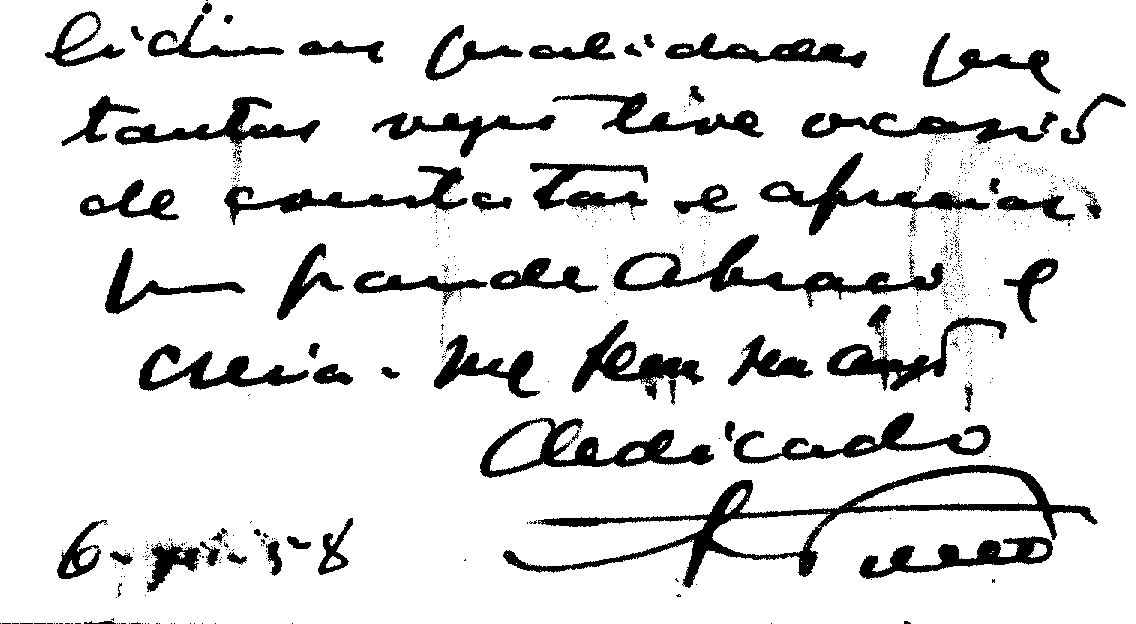 lídimas qualidades que
tantas vezes tive ocasião
de constatar e apreciar.
Um grande abraço e
creia-me seu
dedicado
6- -58